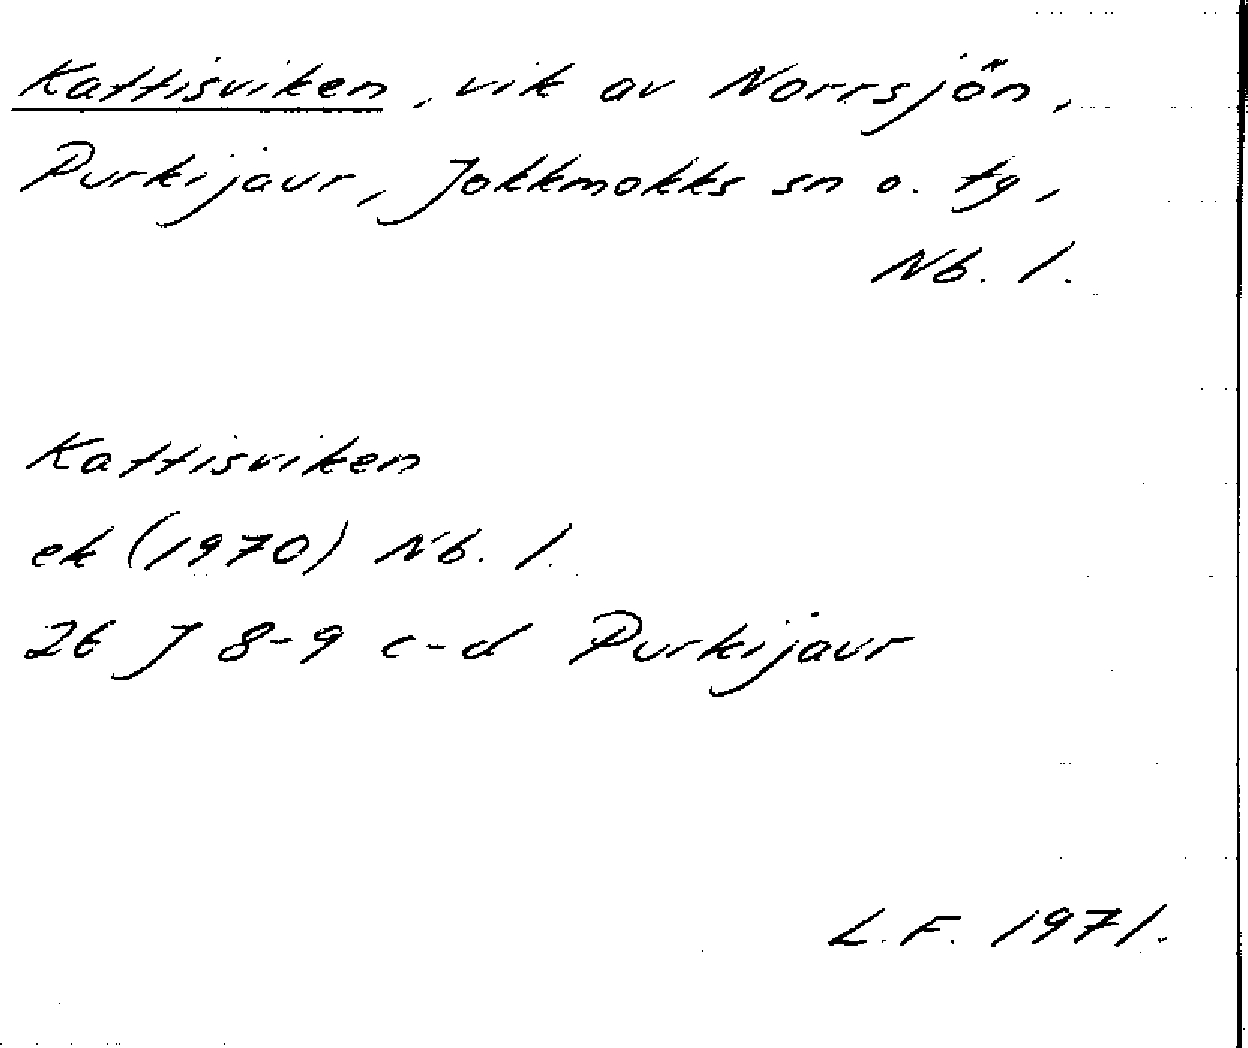 Kattisviken, vik av Norrsjön,
Purkijaur, Jokkmokks sn o. tg,
Nb. l.
Kattisviken
ek (1970) Nb. l.
26 J 8-9 c-d Purkijaur
L.F. 1971.